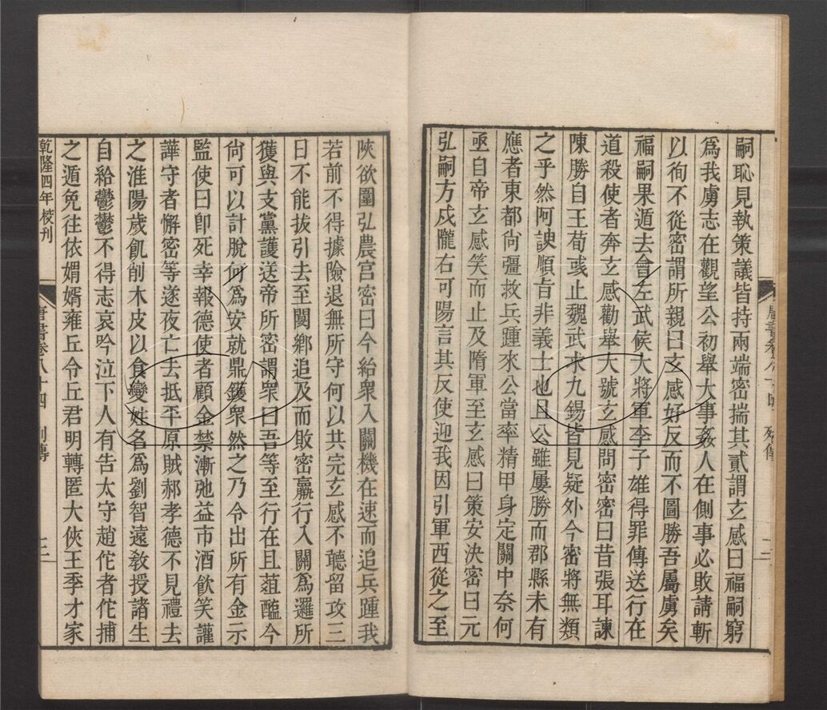 嗣恥見執策議皆持兩端密揣其貳謂玄感曰福嗣窮
爲我虜志在觀望公初舉大事姦人在側事必敗請斬
以徇不從密謂所親曰玄感好反而不圖勝吾屬虜矣
福嗣果遁去會左武候大將軍李子雄得罪傳送行在
道殺使者奔玄感勸舉大號玄感問密密曰昔張耳諫
陳勝自王荀彧止魏武求九錫皆見疑外今密將無類
之乎然阿諛順旨非義士也且公雖屢勝而郡縣未有
應者東都尙彊救兵踵來公當率精甲身定關中奈何
亟自帝玄感笑而止及隋軍至玄感曰策安決密曰元
弘嗣方戍隴右可陽言其反使迎我因引軍西從之至
陝欲圍弘農宫密曰今紿衆入關機在速而追兵踵我
若前不得據險退無所守何以共完玄感不聽留攻三
日不能拔引去至閿鄉追及而敗密羸行入關爲邏所
獲與支黨護送帝所密謂衆曰吾等至行在且葅醢今
尙可以計脫何爲安就鼎鑊衆然之乃令出所有金示
監使曰卽死幸報德使者顧金禁漸弛益市酒飮笑讙
譁守者懈密等遂夜亡去抵平原賊郝孝德不見禮去
之淮陽歲飢削木皮以食變姓名爲劉智遠敎授諸生
自給鬱鬱不得志哀吟泣下人有告太守趙佗者佗捕
之遁免往依妹壻雍丘令丘君明轉匿大俠王季才家
乾隆四年校刊
唐書卷八十四 列傳